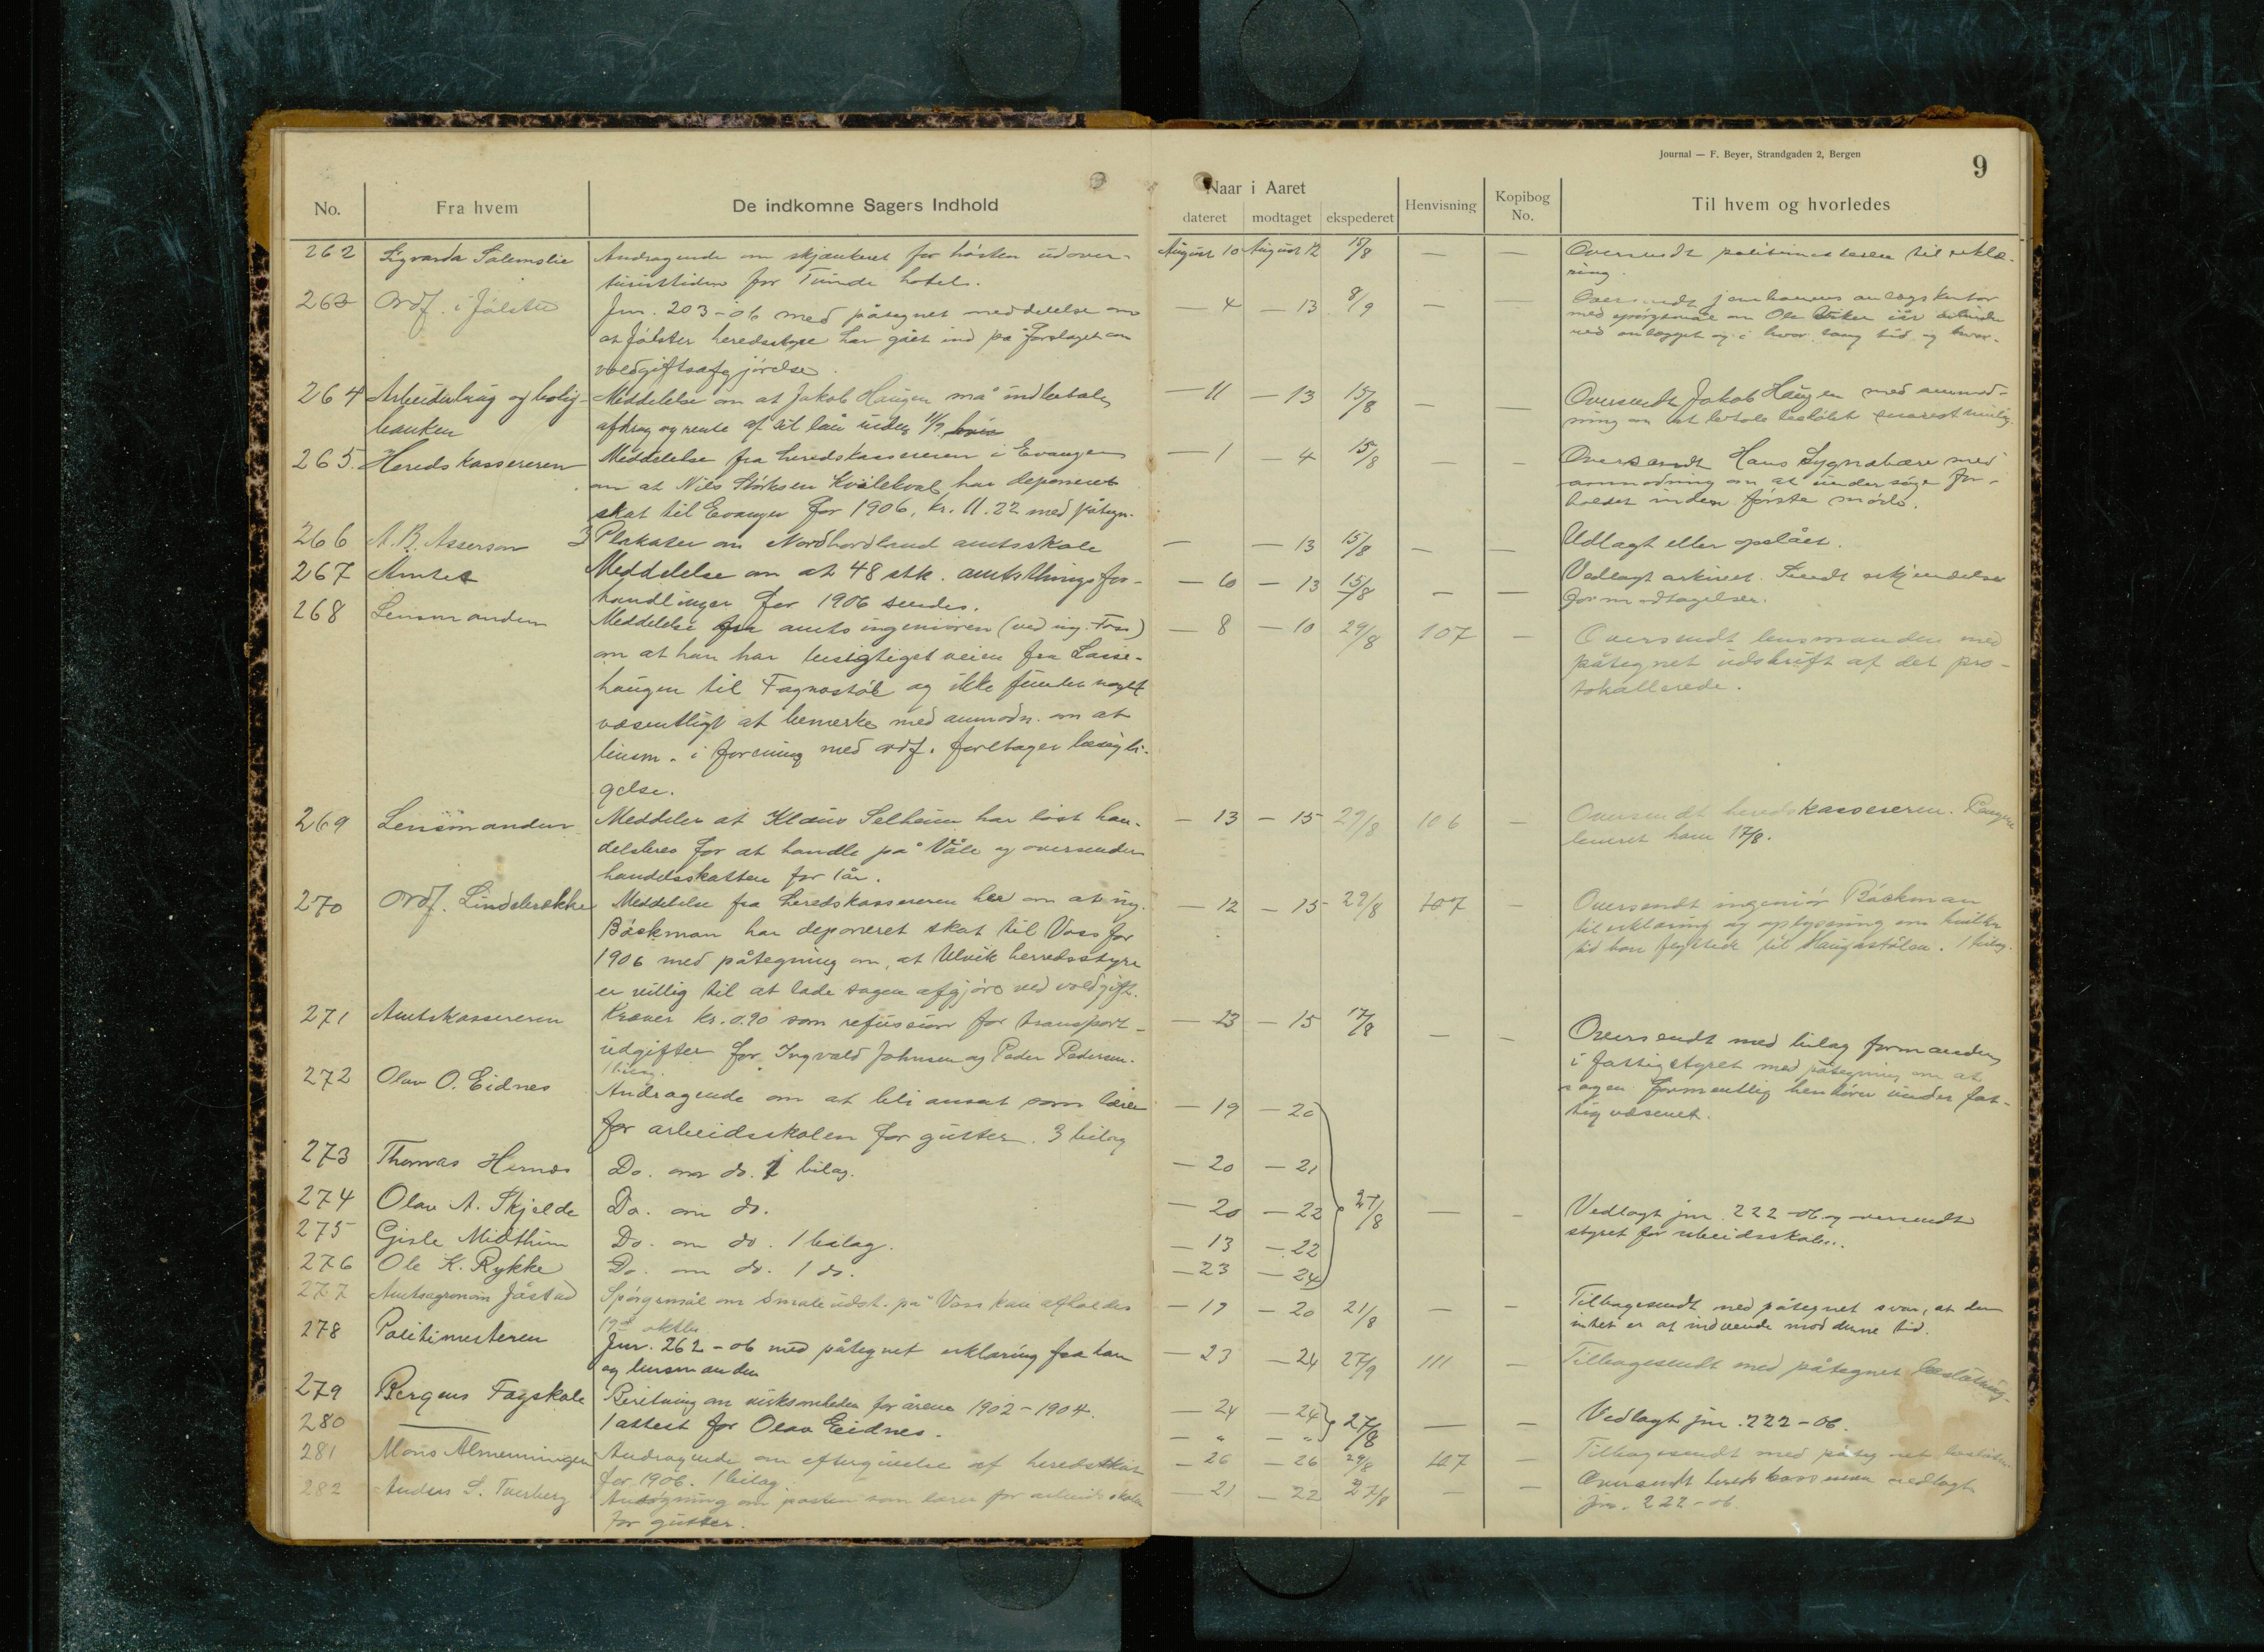 Journal — F. Beyer, Strandgaden 2, Bergen
9
No.
Fra hvem
De indkomne Sagers Indhold
Naar i Aaret
dateret
modtaget
ekspederet
Henvisning
Kopibog
No.
Til hvem og hvorledes
262
Sigvarda Salemslie
Andragende om skjænkeret for hösten udover
turisttiden for Tvinde hotel.
August 10
August 12
15/8
—
—
Oversendt politimesteren til erklæ-
ring.
263
Ordf. i Jølster
Jnr. 203-06 med påtegnet meddelelse om
at Jølster heredsstyre har gået ind på forslaget om
voldgiftsafgjörelse.
— 4
— 13
8/9
—
—
Oversendt jernbanens anlægskontor
med spörgsmaal om Ole
ved anlægget og i hvor lang tid og hvor-
264
Arbeiderbrug og bolig-
banken
Meddelelse om at Jakob Haugen må indbetale
afdrag og rente af sit lån inden 11/9
— 11
— 13
15/8
—
—
Oversendt Jakob Haugen med anmod-
ning om at betale beløbet snarest mulig.
265.
Heredskassereren
Meddelelse fra heredskassereren i Evanger
om at Nils Størksen Kvilekval har deponeret
skat til Evanger for 1906, kr. 11.22 med påtegn.
— 1
— 4
15/8
—
—
Oversendt Hans Lygnebære med
anmodning om at undersöge for-
holdet inden förste möde.
266
A. B. Asserson
3 Plakater om Nordhordland amtsskole
—
— 13
15/8
—
—
Udlagt eller opslået.
267
Amtet
Meddelelse om at 48 stk. amtsthingsfor-
handlinger for 1906 sendes.
— 10
— 13
15/8
—
—
Vedlagt arkivet. Sendt erkjendelse
for modtagelsen.
268
Lensmanden
Meddelelse fra amtsingeniøren (ved ing. Foss)
om at han har besigtiget veien fra
haugen til Fagnastöl og ikke finder noget
væsentligt at bemerke med anmodn. om at
lensm. i forening med ordf. foretager besigti-
gelse.
— 8
— 10
29/8
107
—
Oversendt lensmanden med
påtegnet udskrift af det pro-
tokollerede.
269
Lensmanden
Meddeler at Klaus Selheim har löst han-
delsbrev for at handle på Våle og oversender
handelsskatten for 1 år.
— 13
— 15
29/8
106
—
Oversendt heredskassereren. Pengene
leveret ham 17/8.
270
Ordf. Lindebrekke
Meddelelse fra heredskassereren her om at ing.
Bäckman har deponeret skat til Voss for
1906 med påtegning om, at Ulvik herredsstyre
er villig til at lade sagen afgjöre ved voldgift.
— 12
— 15
29/8
107
—
Oversendt ingeniör Bäckman
til erklæring og oplysning om hvilken
tid han flyttede til Haugastölen. 1 bilag.
271
Amtskassereren
Kræver kr. 0.90 som refusion for transport-
udgifter for Ingvald Johnsen og Peder Pedersen.
1 bilag.
— 13
— 15
17/8
—
—
Oversendt med bilag formanden
i fattigstyret med påtegning om at
sagen formentlig henhörer under fat-
tigvæsenet.
272
Olav O. Eidnes
Andragende om at bli ansat som lærer
for arbeidsskolen for gutter. 3 bilag
— 19
— 20
273
Thomas Hernes
Do. om do. 1 bilag.
— 20
— 21
274
Olav A. Skjelde
Do. om do.
— 20
— 22
27/8
—
—
Vedlagt jnr. 222-06 og oversendt
styret for arbeidsskolen.
275
Gisle Midttun
Do. om do. 1 bilag.
— 13
— 22
276
Ole K. Rykke
Do. om do. 1 do.
— 23
— 24
277
Amtsagronom Jåstad
Spörgsmål om småleudst. på Voss kan afholdes
17de oktbr
— 19
— 20
21/8
—
—
Tilbagesendt med påtegnet svar, at der
intet er at indvende mod denne tid.
278
Politimesteren
Jnr. 262-06 med påtegnet erklæring fra ham
og lensmanden
— 23
— 24
27/9
111
—
Tilbagesendt med påtegnet beslutning.
279
Bergens Fagskole
Beretning om virksomheden for årene 1902-1904.
— 24
— 24
27/8
—
—
Vedlagt jnr. 222-06.
280
—
1 attest for Olav Eidnes.
— "
— "
281
Mons Almenningen
Andragende om eftergivelse af heredsskat
for 1906. 1 bilag
— 26
— 26
29/8
107
—
Tilbagesendt med påtegnet beslutn.
282
Anders L. Tverberg
Ansögning om posten som lærer for arbeidsskolen
for gutter.
— 21
— 22
27/8
—
—
Oversendt heredskassereren vedlagt
jnr. 222-06.